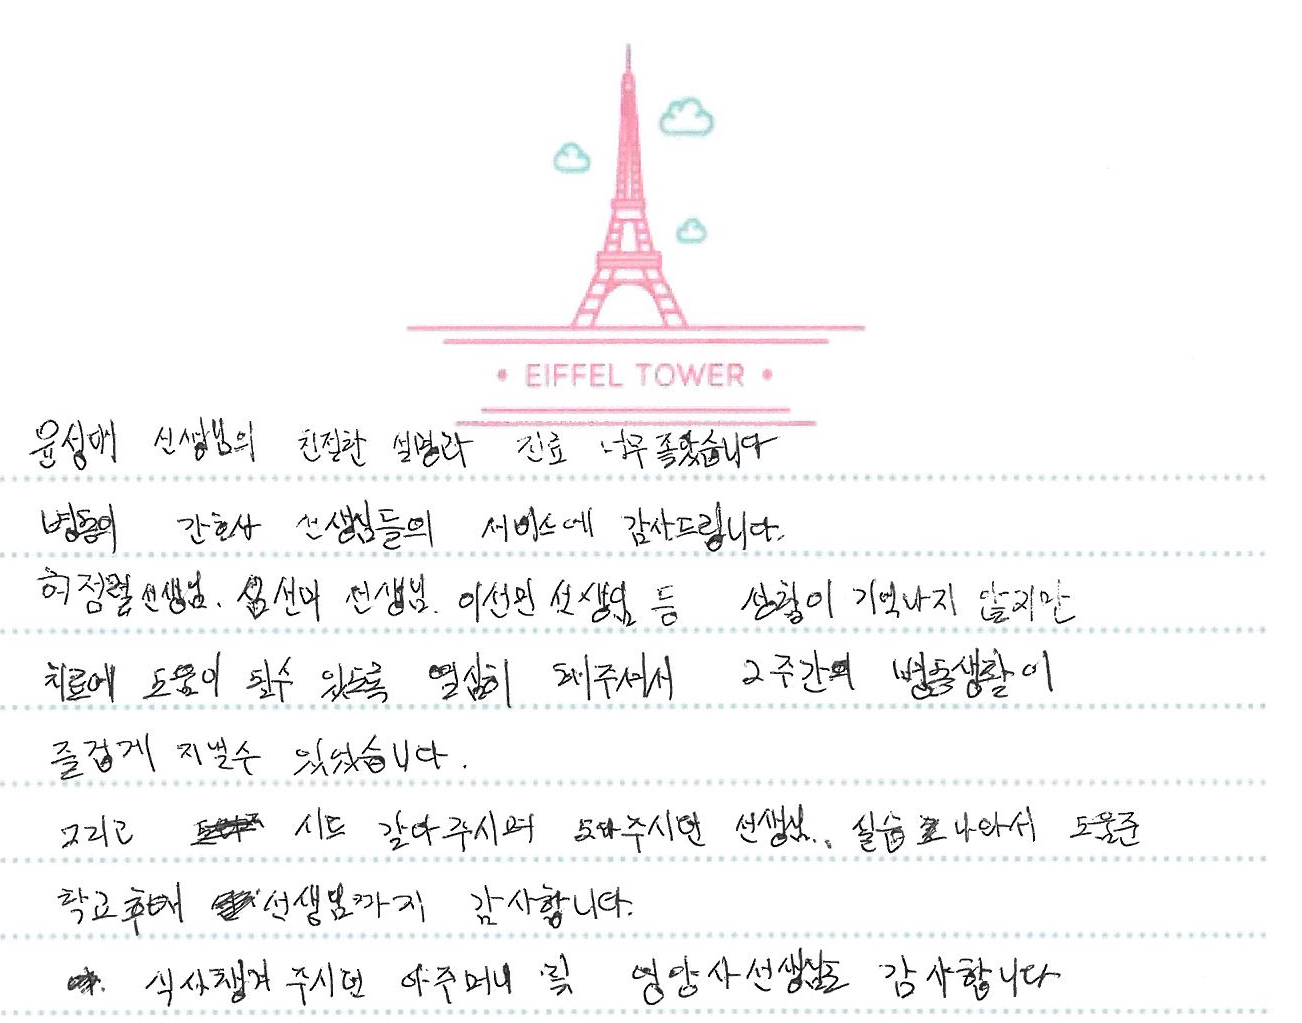 • EIFFEL TOWER •
윤성배 선생님의 친절한 설명과 진료 너무 좋았습니다
병동의 간호사 선생님들의 서비스에 감사드립니다.
허정렬 선생님. 선미 선생님. 이선민 선생님 등 성함이 기억나지 않지만
치료에 도움이 될수 있도록 열심히 해주셔서 2주간의 병동생활이
즐겁게 지낼수 있었습니다.
그리고 시트 갈아주시며 도와주시던 선생님. 실습 나와서 도움준
학교후배 선생님까지 감사합니다.
식사챙겨 주시던 아주머니 및 영양사선생님도 감사합니다